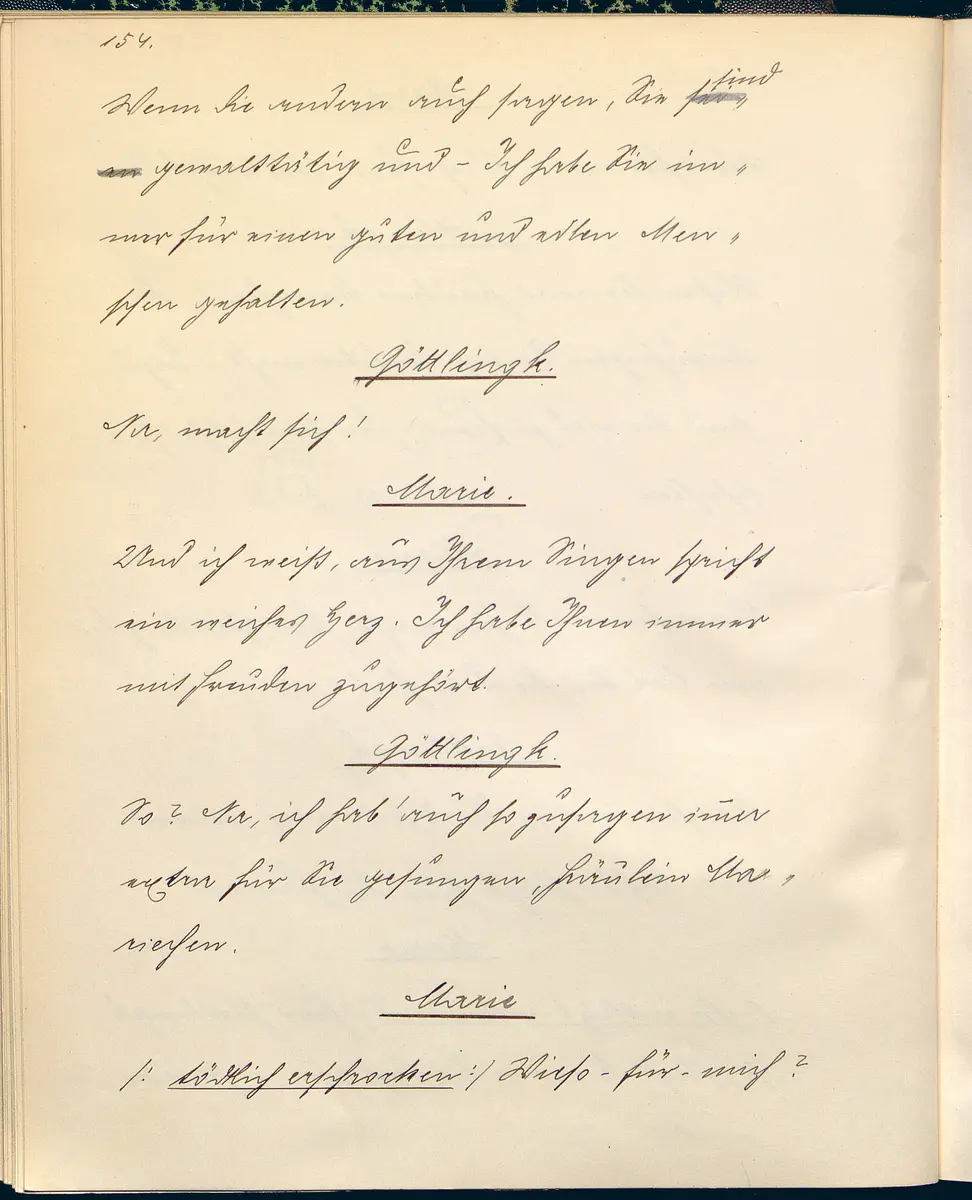 154.
Wenn die andern auch sagen, Sie sind
gewalttätig und - Ich habe Sie im„
mer für einen guten und edlen Men„
schen gehalten.
Göttlingk.
Na, macht sich!
Marie.
Und ich weiß, aus Ihrem Singen spricht
ein weiches Herz. Ich habe Ihnen immer
mit Freuden zugehört.
Göttlingk.
So? Na, ich hab' auch so zusagen im̅er
extra für Sie gesungen, Fräulein Ma„
riechen.
Marie
/: tödlich erschrocken :/ Wieso - für - mich?